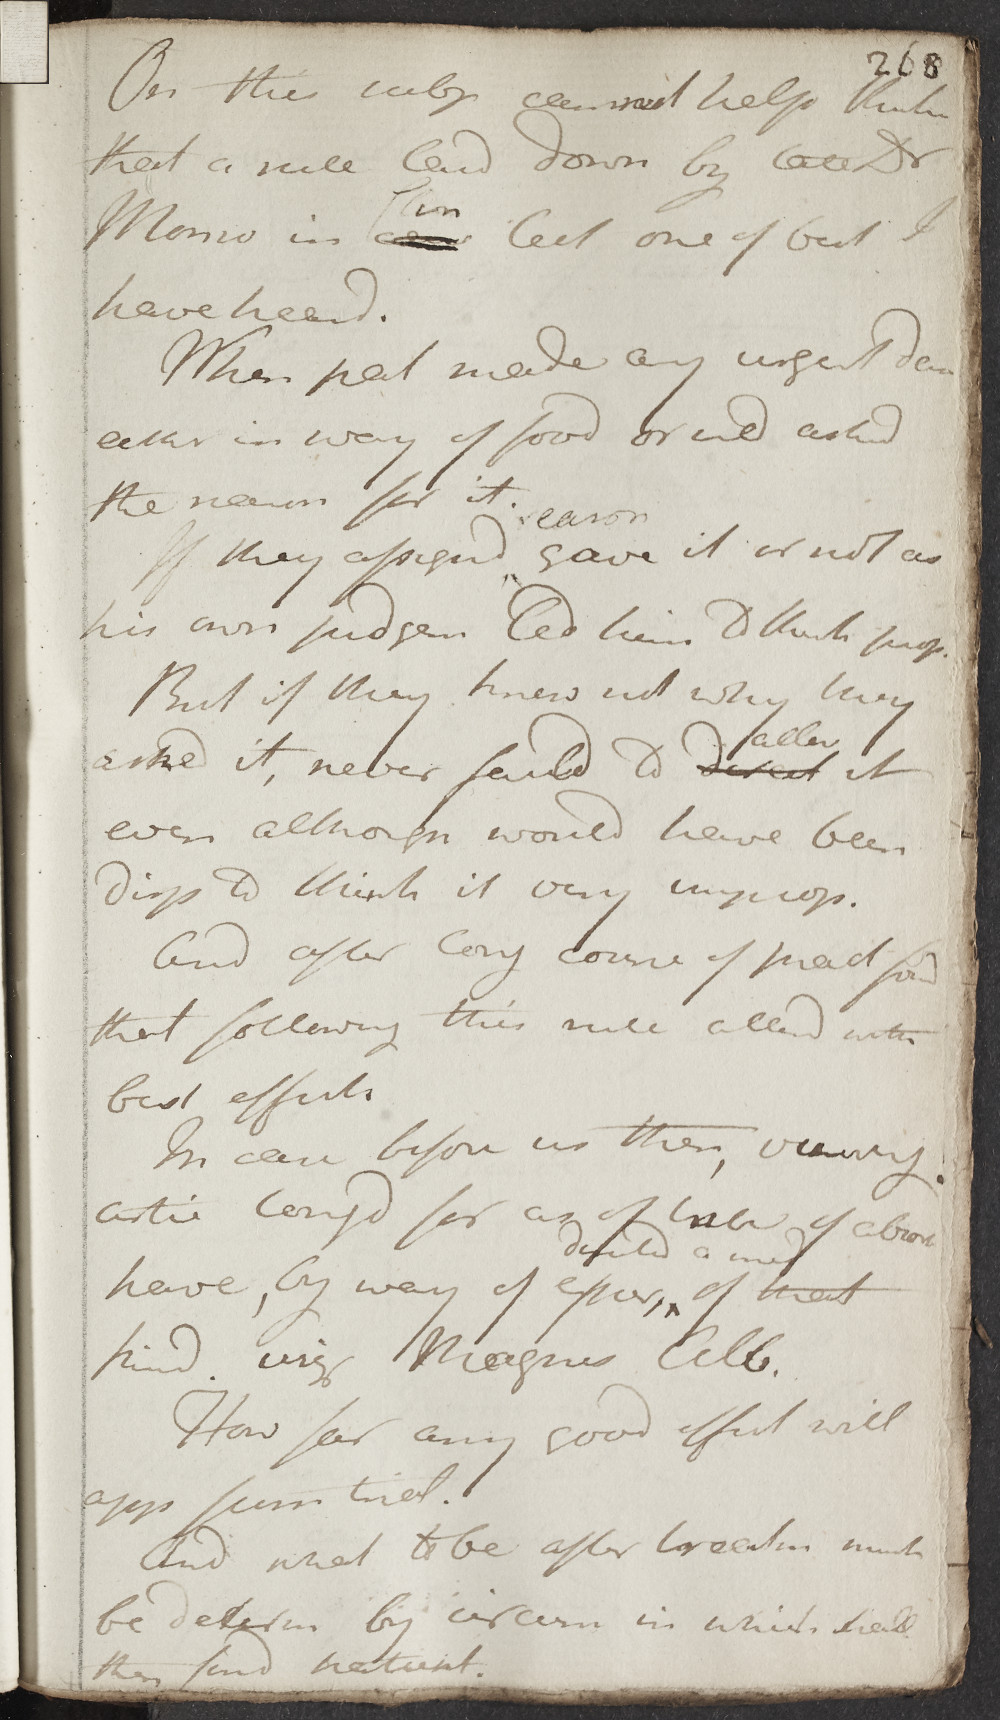 268
On this subj cannot help think
that a rule laid down by late Dr
Monro in Clin Lect one of best I
have heard.
When pat made any urgent dem
either in way of food or med asked
the reason for it.
If they assignd reason gave it or not as
his own judgem led him to think prop.
But if they knew not why they
asked it, never faild to direct allow it
even althoug would have been
disp to think it very improp.
And after long course of pract found
that following this rule attend with
best effects
In case before us then, viewing
longd for as of of above
have, by way of exper, directed a med of that
kind. viz Magnes Alb.
How far any good effect will
app from trial.
And what to be after treatm must
be determ by circum in which shall
then find patient.